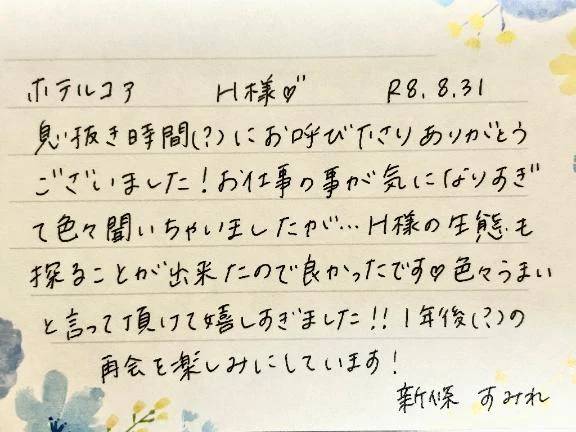 ホテルコア H様♡ R8.8.31
息抜き時間(?)にお呼び下さりありがとう
ございました！お仕事の事が気になりすぎ
て色々聞いちゃいましたが…H様の生態も
探ることが出来たので良かったです♡色々うまい
と言って頂けて嬉しすぎました!!1年後(?)の
再会を楽しみにしています！
新保 すみれ